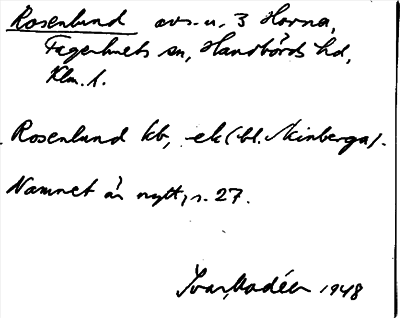 Rosenlund avs. u. 3 Horna,
Fagerhults sn, Handbörds hd,
Klm. l.
Rosenlund kb, ek (bl. Skinberga).
Namnet är nytt, s. 27.
Ivar Modéer 1948